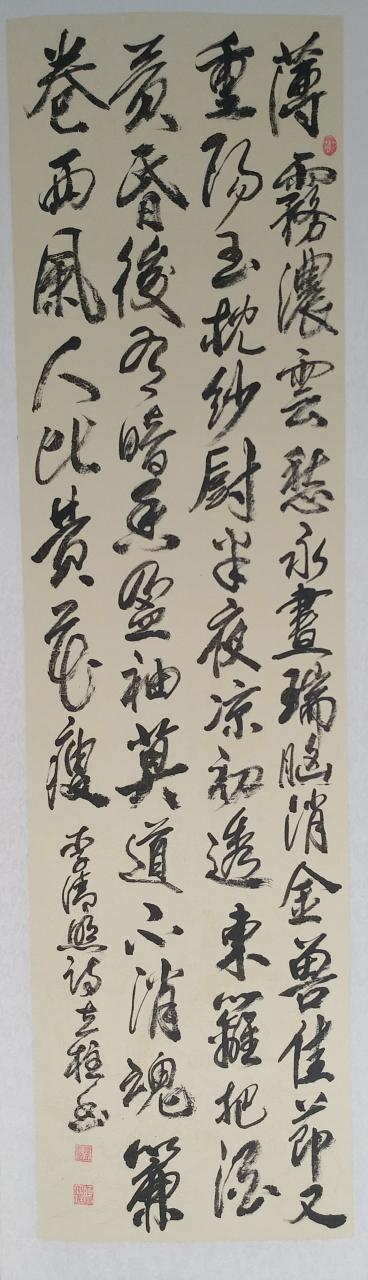 薄霧濃雲愁永晝瑞腦消金獸佳節又
重陽玉枕紗厨半夜凉初透東籬把酒
黄昏後有暗香盈袖莫道不消魂簾
卷西風人比黄花瘦
李清照詩立柱书